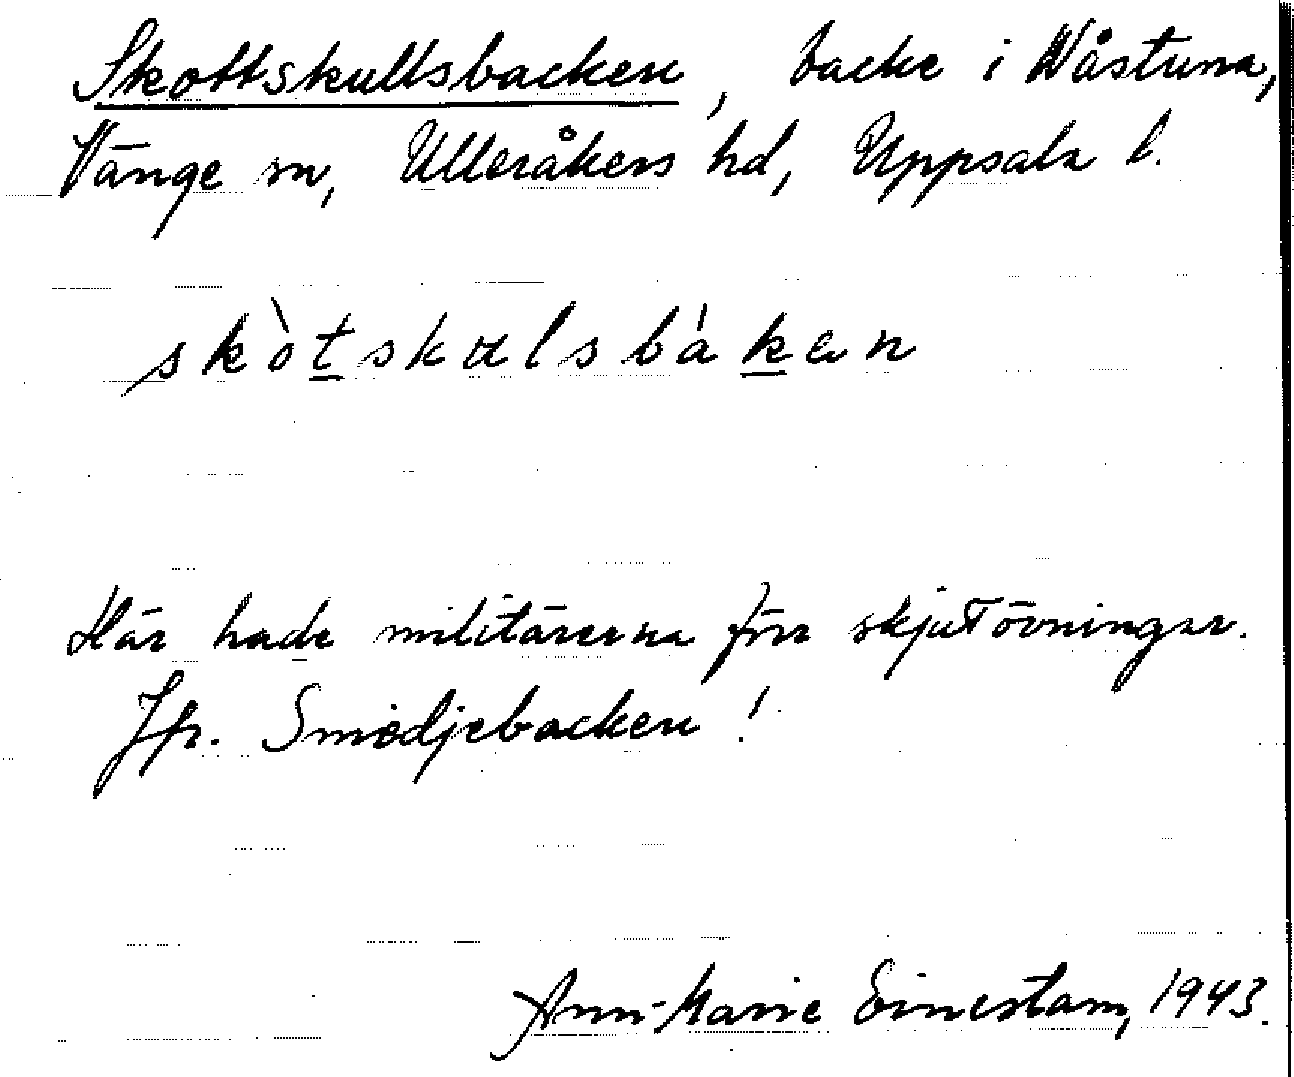 Skottskullsbacken, backe i Wåstuna,
Vänge sn, Ulleråkers hd, Uppsala l.
skòtskulsbákan
Här hade militärerna förr skjutövningar.
Jfr. Smedjebacken!
Ann-Marie Einestam, 1943.